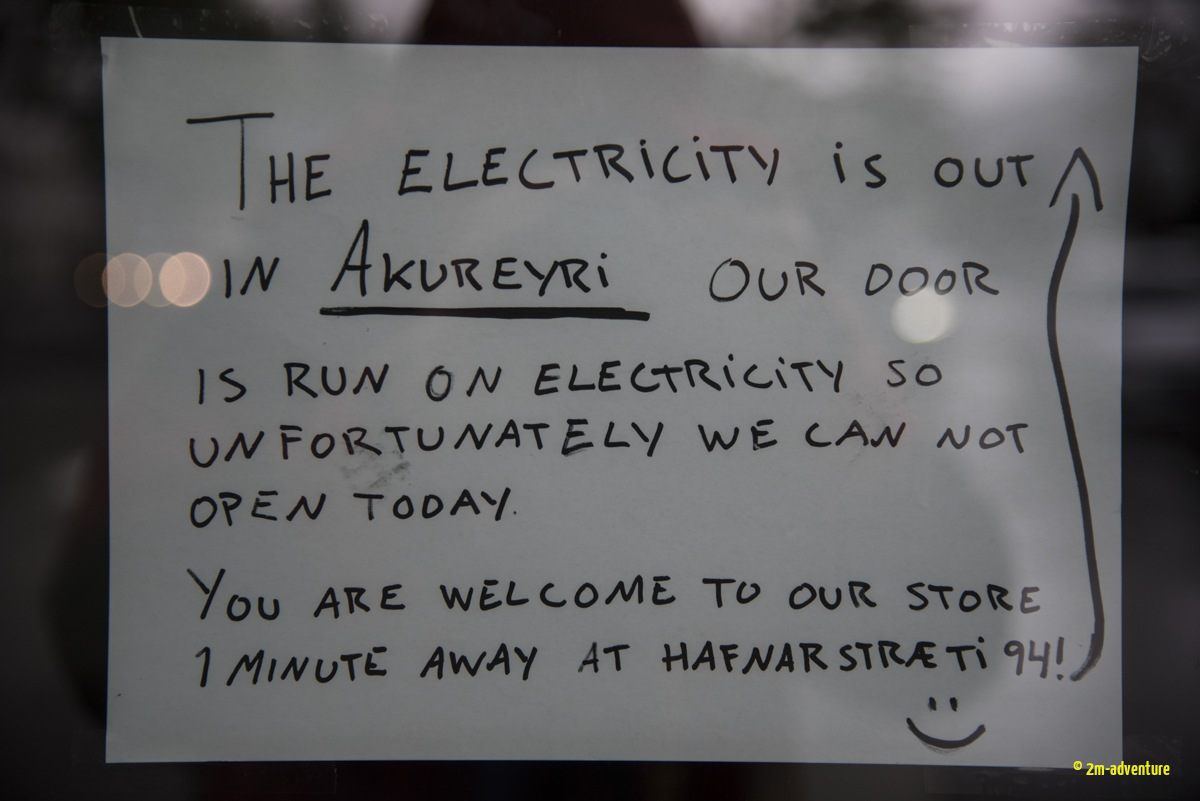 THE ELECTRICITY IS OUT
IN AKUREYRI OUR DOOR
IS RUN ON ELECTRICITY SO
UNFORTUNATELY WE CAN NOT
OPEN TODAY.
YOU ARE WELCOME TO OUR STORE
1 MINUTE AWAY AT HAFNARSTRÆTI 94!
© 2m-adventure